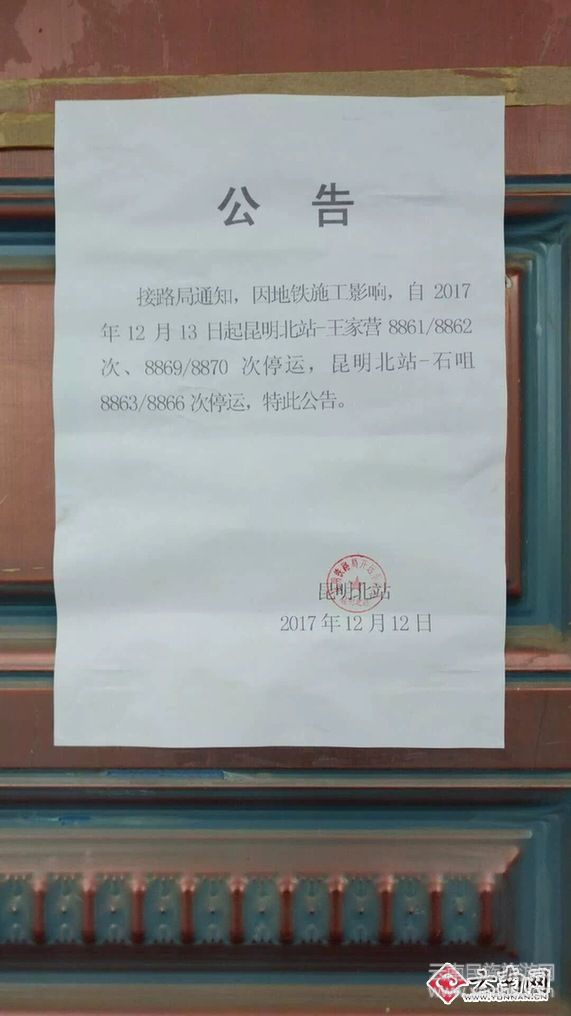 公 告
接路局通知，因地铁施工影响，自 2017
年 12 月 13 日起昆明北站-王家营 8861/8862
次、8869/8870 次停运，昆明北站-石咀
8863/8866 次停运，特此公告。
昆明北站
2017 年 12 月 12 日
云南网
WWW.YUNNAN.CN